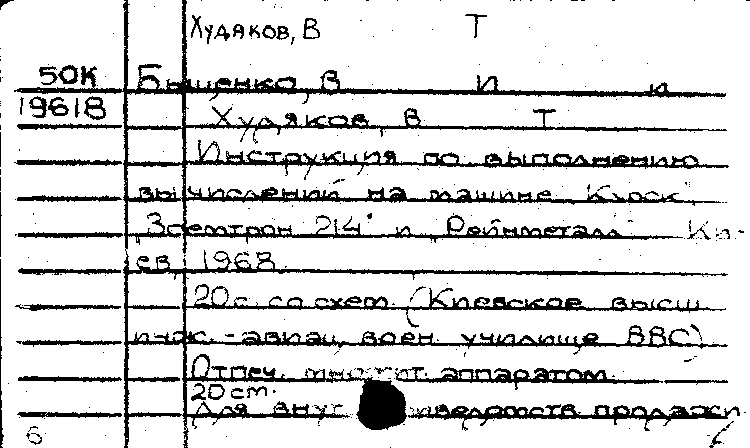 Худяков, В Т
50К Быценко, В И и
19618 Худяков, В Т
Инструкция по выполнению
вычислений на машине "Курск",
"Зоемтрон 214" и "Рейнметалл" Ки-
ев, 1968.
20с. со схем. (Киевское высш
инж.-авиац. воен. училище ВВС)
Отпеч. множит. аппаратом.
20 cm.
Для внут продажи
6